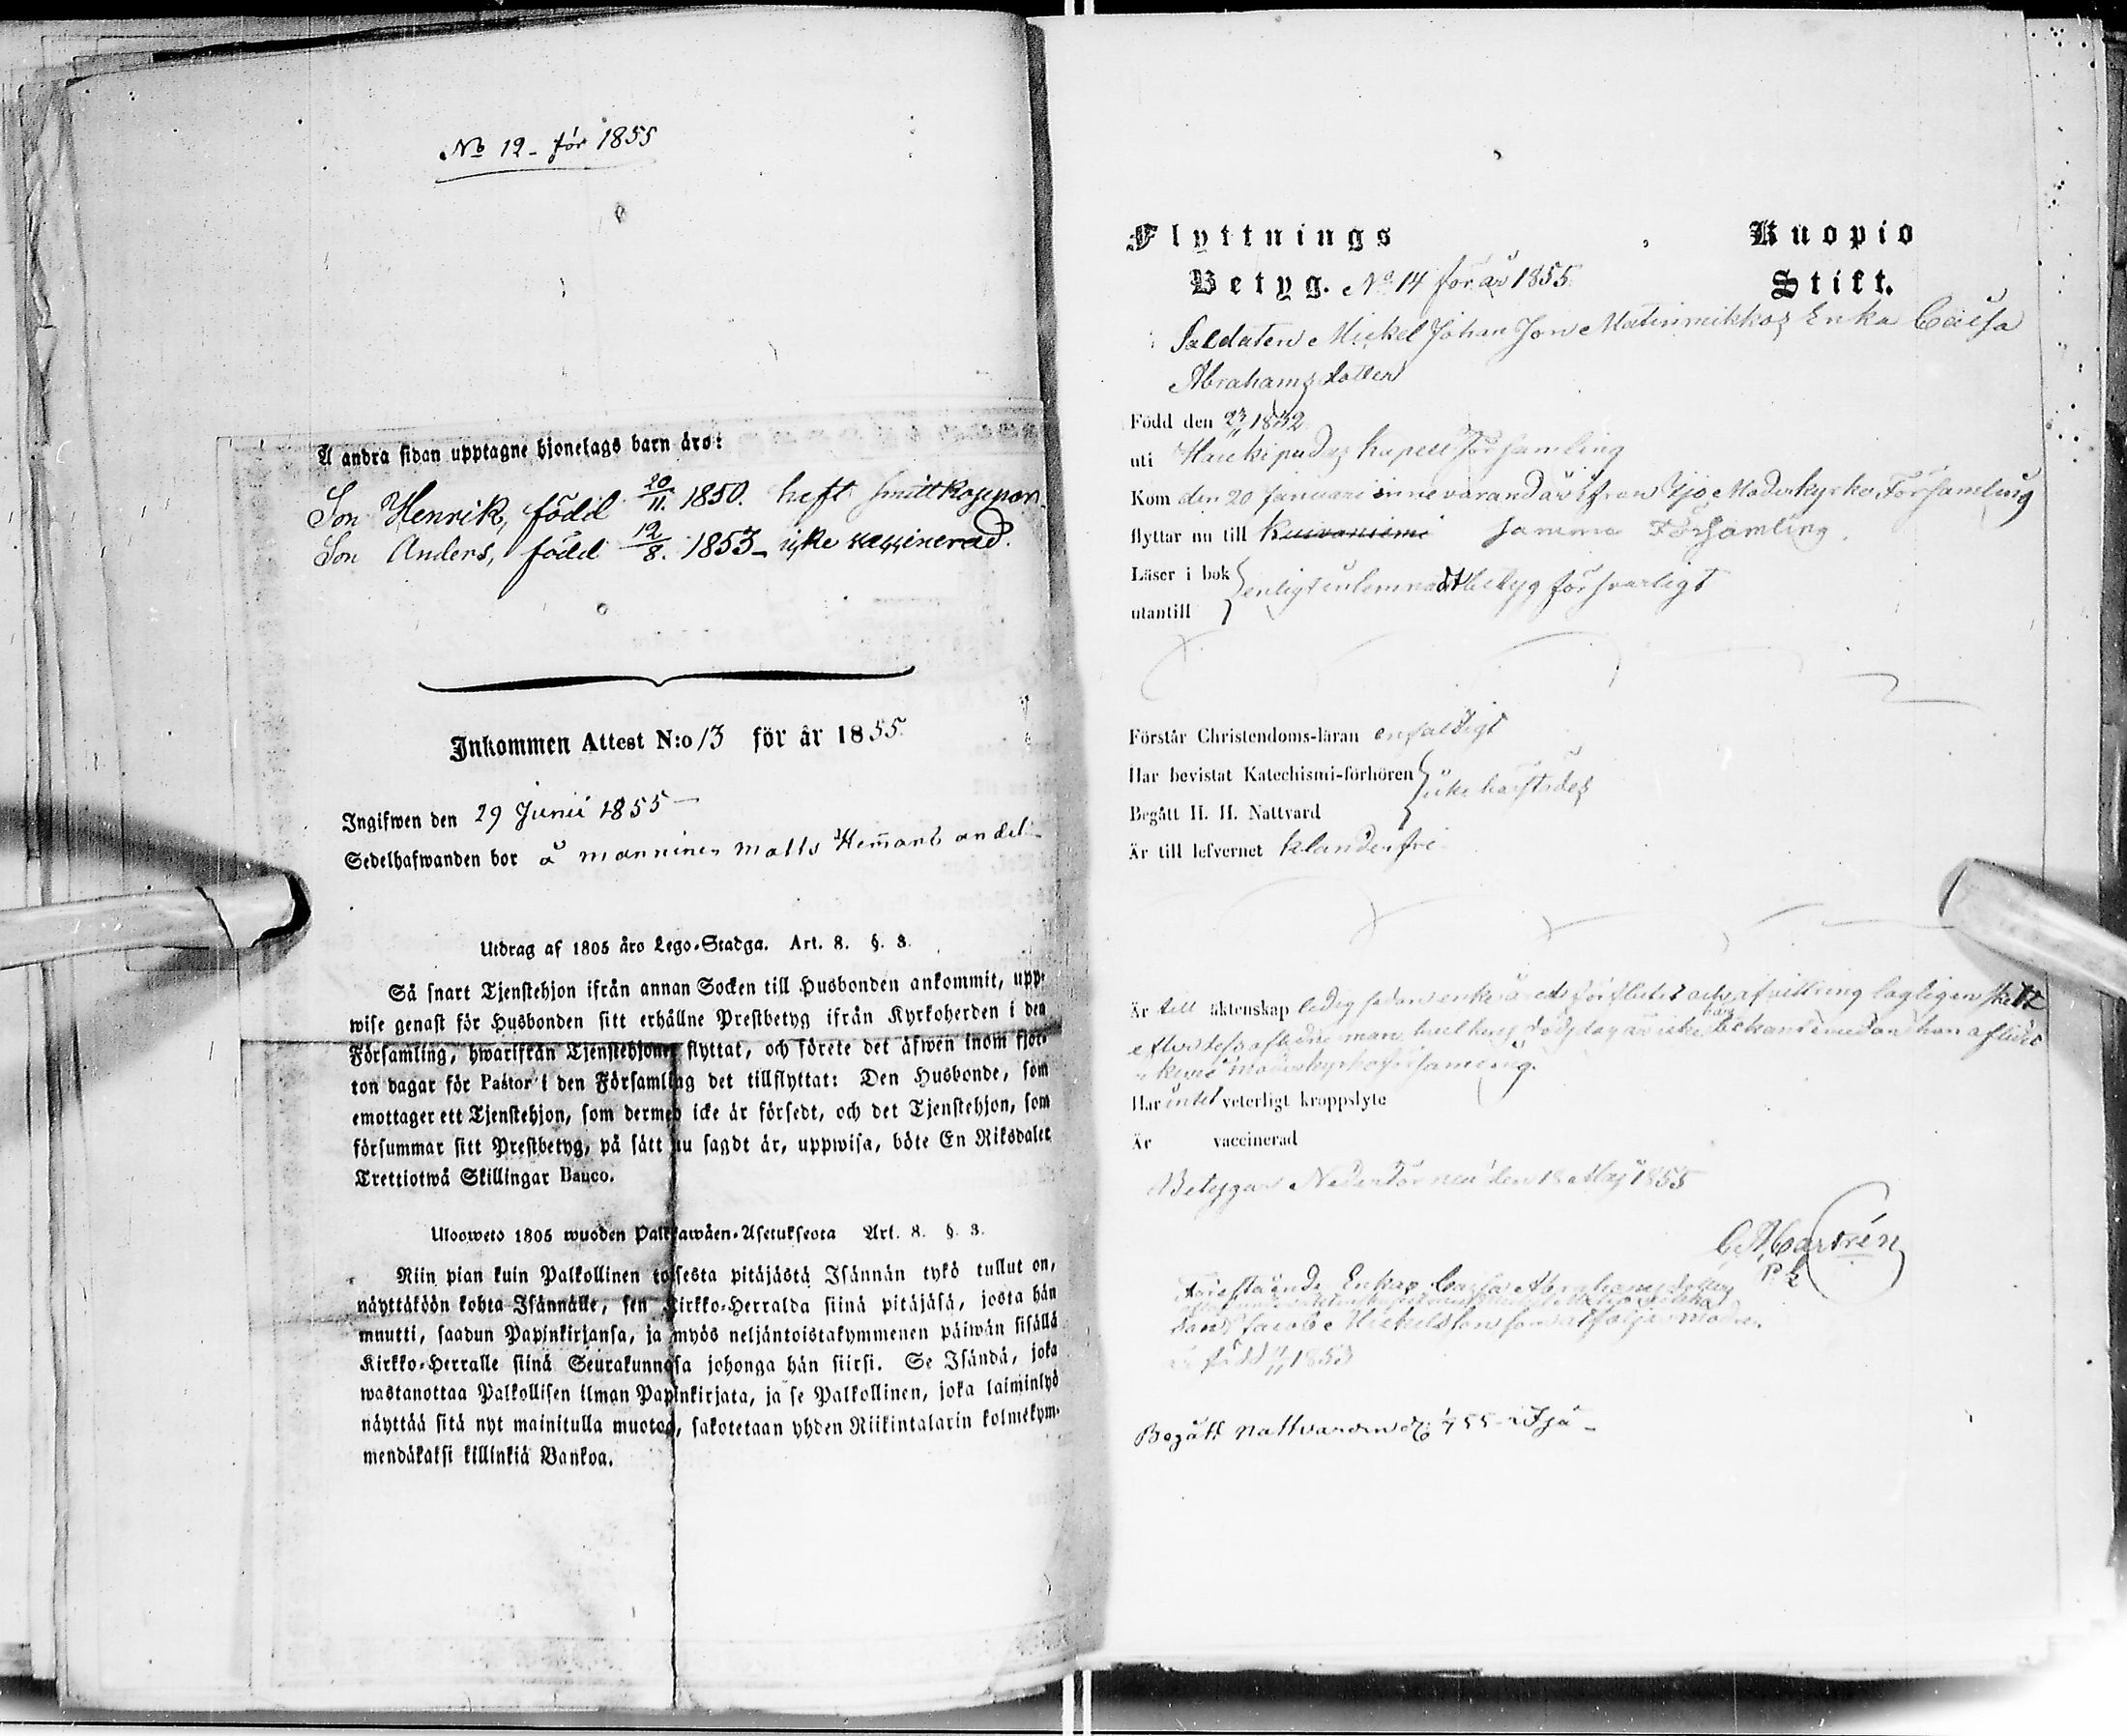 No 12 - för 1855
Å andra sidan upptagne hjonelags barn äro:
Son Henrik, född 20/11. 1850. haft smittkoppor.
Son Anders, född 12/8. 1853 - icke vaccinerad.
Inkommen Attest N:o 13 för år 1855.
Ingifwen den 29 Junii 1855 -
Sedelhafwanden bor å Manninen Matts Hemans andel -
Utdrag af 1805 års Lego-Stadga. Art. 8. §. 3.
Så snart Tjenstehjon ifrån annan Socken till Husbonden ankommit, upp-
wise genast för Husbonden sitt erhållne Prestbetyg ifrån Kyrkoherden i den
Församling, hwarifrån Tjenstehjonet flyttat, och förete det äfwen inom fjor-
ton dagar för Pastor i den Församling det tillflyttat: Den Husbonde, som
emottager ett Tjenstehjon, som dermed icke är försedt, och det Tjenstehjon, som
försummar sitt Prestbetyg, på sätt nu sagdt är, uppwisa, böte En Riksdaler
Trettiotwå Skillingar Banco.
Ulosweto 1805 wuoden Palkkawäen-Asetuksesta Art. 8. §. 3.
Niin pian kuin Palkollinen toisesta pitäjästä Isännän tykö tullut on,
näyttäköön kohta Isännälle, sen Kirkko-Herralda siinä pitäjäsä, josta hän
muutti, saadun Papinkirjansa, ja myös neljäntoistakymmenen päiwän sisällä
Kirkko-Herralle siinä Seurakunnasa johonga hän siirsi. Se Isändä, joka
wastanottaa Palkollisen ilman Papinkirjata, ja se Palkollinen, joka laiminlyö
näyttää sitä nyt mainitulla muotoa, sakotetaan yhden Riikintalarin kolmekym-
mendäkaksi killinkiä Bankoa.
Flyttnings Kuopio
Betyg. No 14 för år 1855. Stift.
Soldaten Mickel Johan Son Matinmikkos Enka Caisa
Abrahams dotter
Född den 23/11 1832
uti Haukipudas Kapell Församling
Kom den 20 Januari innevarand år ifrån Ijo Moderkyrko Församling
flyttar nu till Kuivaniemi samma Församling.
Läser i bok } enligt inlemnadt betyg försvarligt
utantill
Förstår Christendoms-läran enfaldigt
Har bevistat Katechismi-förhören } icke härstädes
Begått H. H. Nattvard
Är till lefvernet klanderfri
Är till äktenskap ledig sedan enkeåret förflutit och afvittring lagligen skett
efter dess aflidne man, hvilkens dödsdag är icke här bekant emedan han aflidit
i moderkyrkoförsamling.
Har intet veterligt kroppslyte
Är vaccinerad
Betygar Nedertorneå den 18 Maj 1855
Castrén
Föreståends Enkas Caisa Abrahams dotters
Jacob Mickelsson som åtföljer modren
är född 11/11 1853
Begått nattvarden 1/7 55 i Ijo -